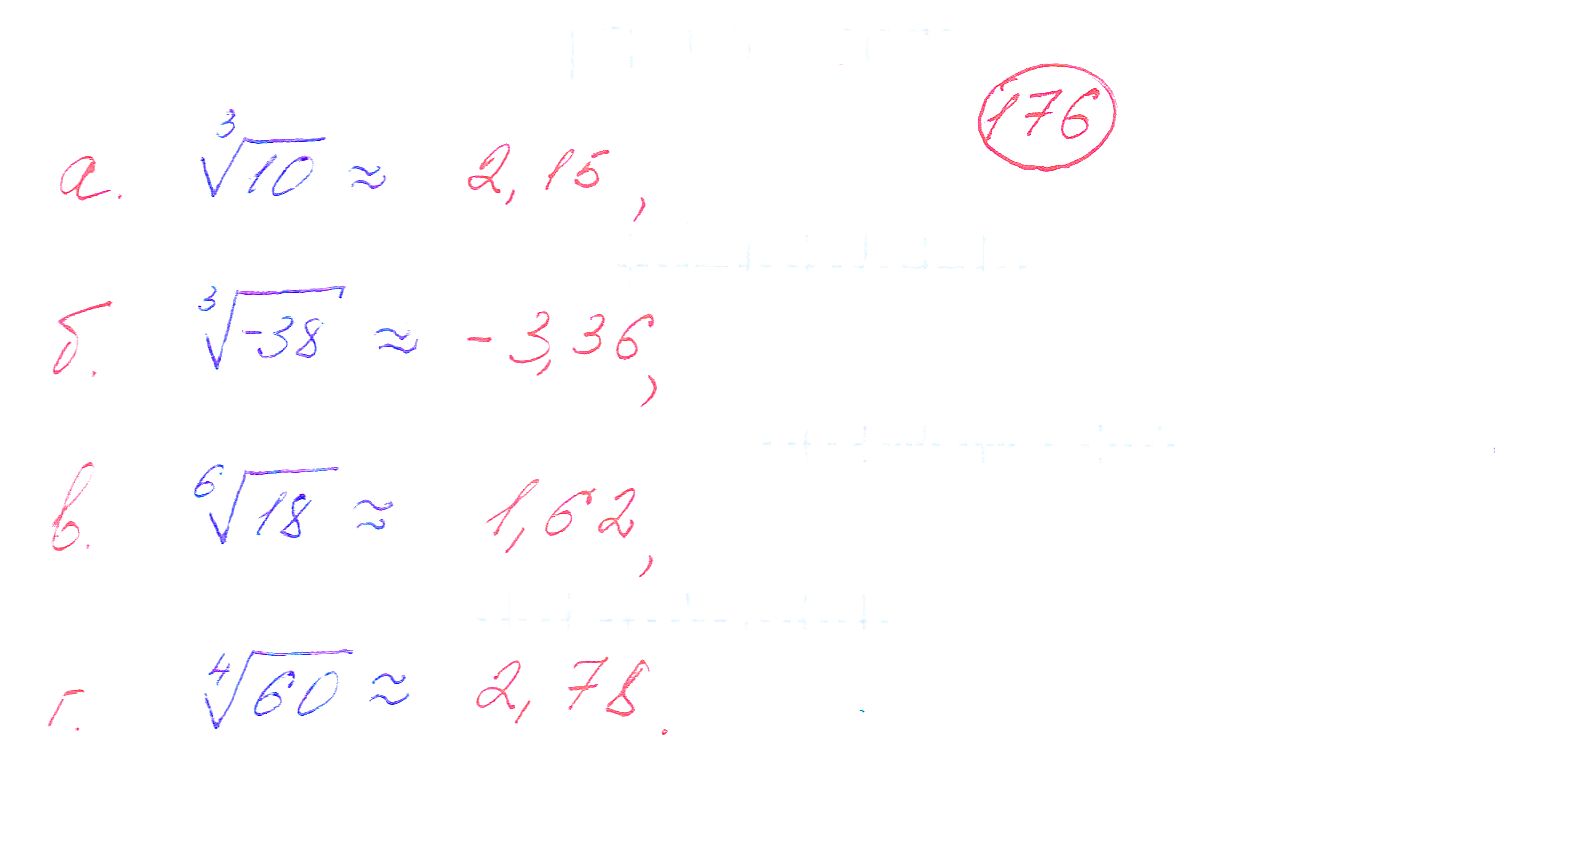 176
а. ∛10 ≈ 2,15,
б. ∛-38 ≈ -3,36,
в. ⁶√18 ≈ 1,62,
г. ⁴√60 ≈ 2,78.